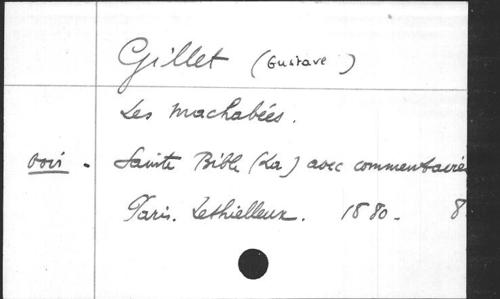 Gillet (Gustave)
Les Machabées.
voir - Sainte Bible (La) avec commentaire
Paris. Lethielleux. 1880 - 8